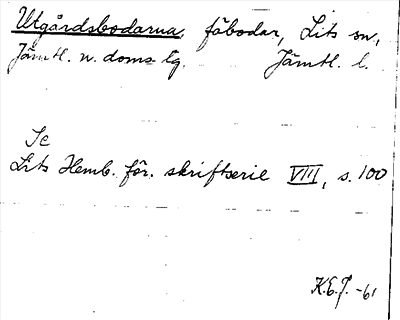 Utgårdsbodarna, fäbodar, Lits sn,
Jämtl. n. doms tg. Jämtl. l.
Se
Lits Hemb. för. skriftserie VIII, s. 100
K.E.J. -61